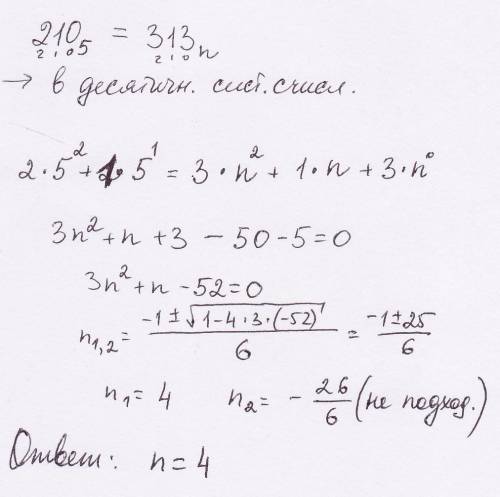 210₅ = 313ₙ
2 1 0 2 1 0
→ в десятичн. сист. счисл.
2·5² + 1·5¹ = 3·n² + 1·n + 3·n⁰
3n² + n + 3 − 50 − 5 = 0
3n² + n − 52 = 0
n₁,₂ = (−1 ± √(1 − 4·3·(−52))) / 6 = (−1 ± 25) / 6
n₁ = 4 n₂ = − 26/6 (не подход.)
Ответ: n = 4